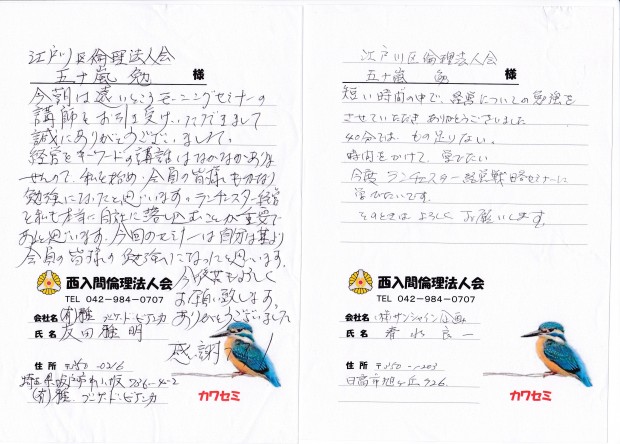 江戸川区倫理法人会
五十嵐 勉 様
今朝は遠いところモーニングセミナーの
講師をお引き受けいただきまして
誠にありがとうございました。
経営をキーワードの講話はなかなかありま
せんので、私を始め、会員の皆様もかなり
勉強になったと思います。ランチェスター経営
を私も本当に自社に落し込むことが重要で
あると思います。今回のセミナーは自分は基より
会員の皆様の勉強になったと思います。
今後共よろしく
お願い致します。
ありがとうございました
感謝
西入間倫理法人会
TEL 042-984-0707
会社名 (有)雅
氏名 友田 雅明
住所 〒350-0216
埼玉県坂戸市
(有)雅
カワセミ
江戸川区倫理法人会
五十嵐 勉 様
短い時間の中で、経営についての勉強を
させていただき ありがとうございました
40分では、もの足りない。
時間をかけて、学びたい
今度 ランチェスター経営戦略セミナーに
学びたいです。
そのときは よろしく お願いします。
西入間倫理法人会
TEL 042-984-0707
会社名 (株)サンシャイン企画
氏名 香水 良一
住所 〒350-1203
日高市旭ヶ丘926
カワセミ